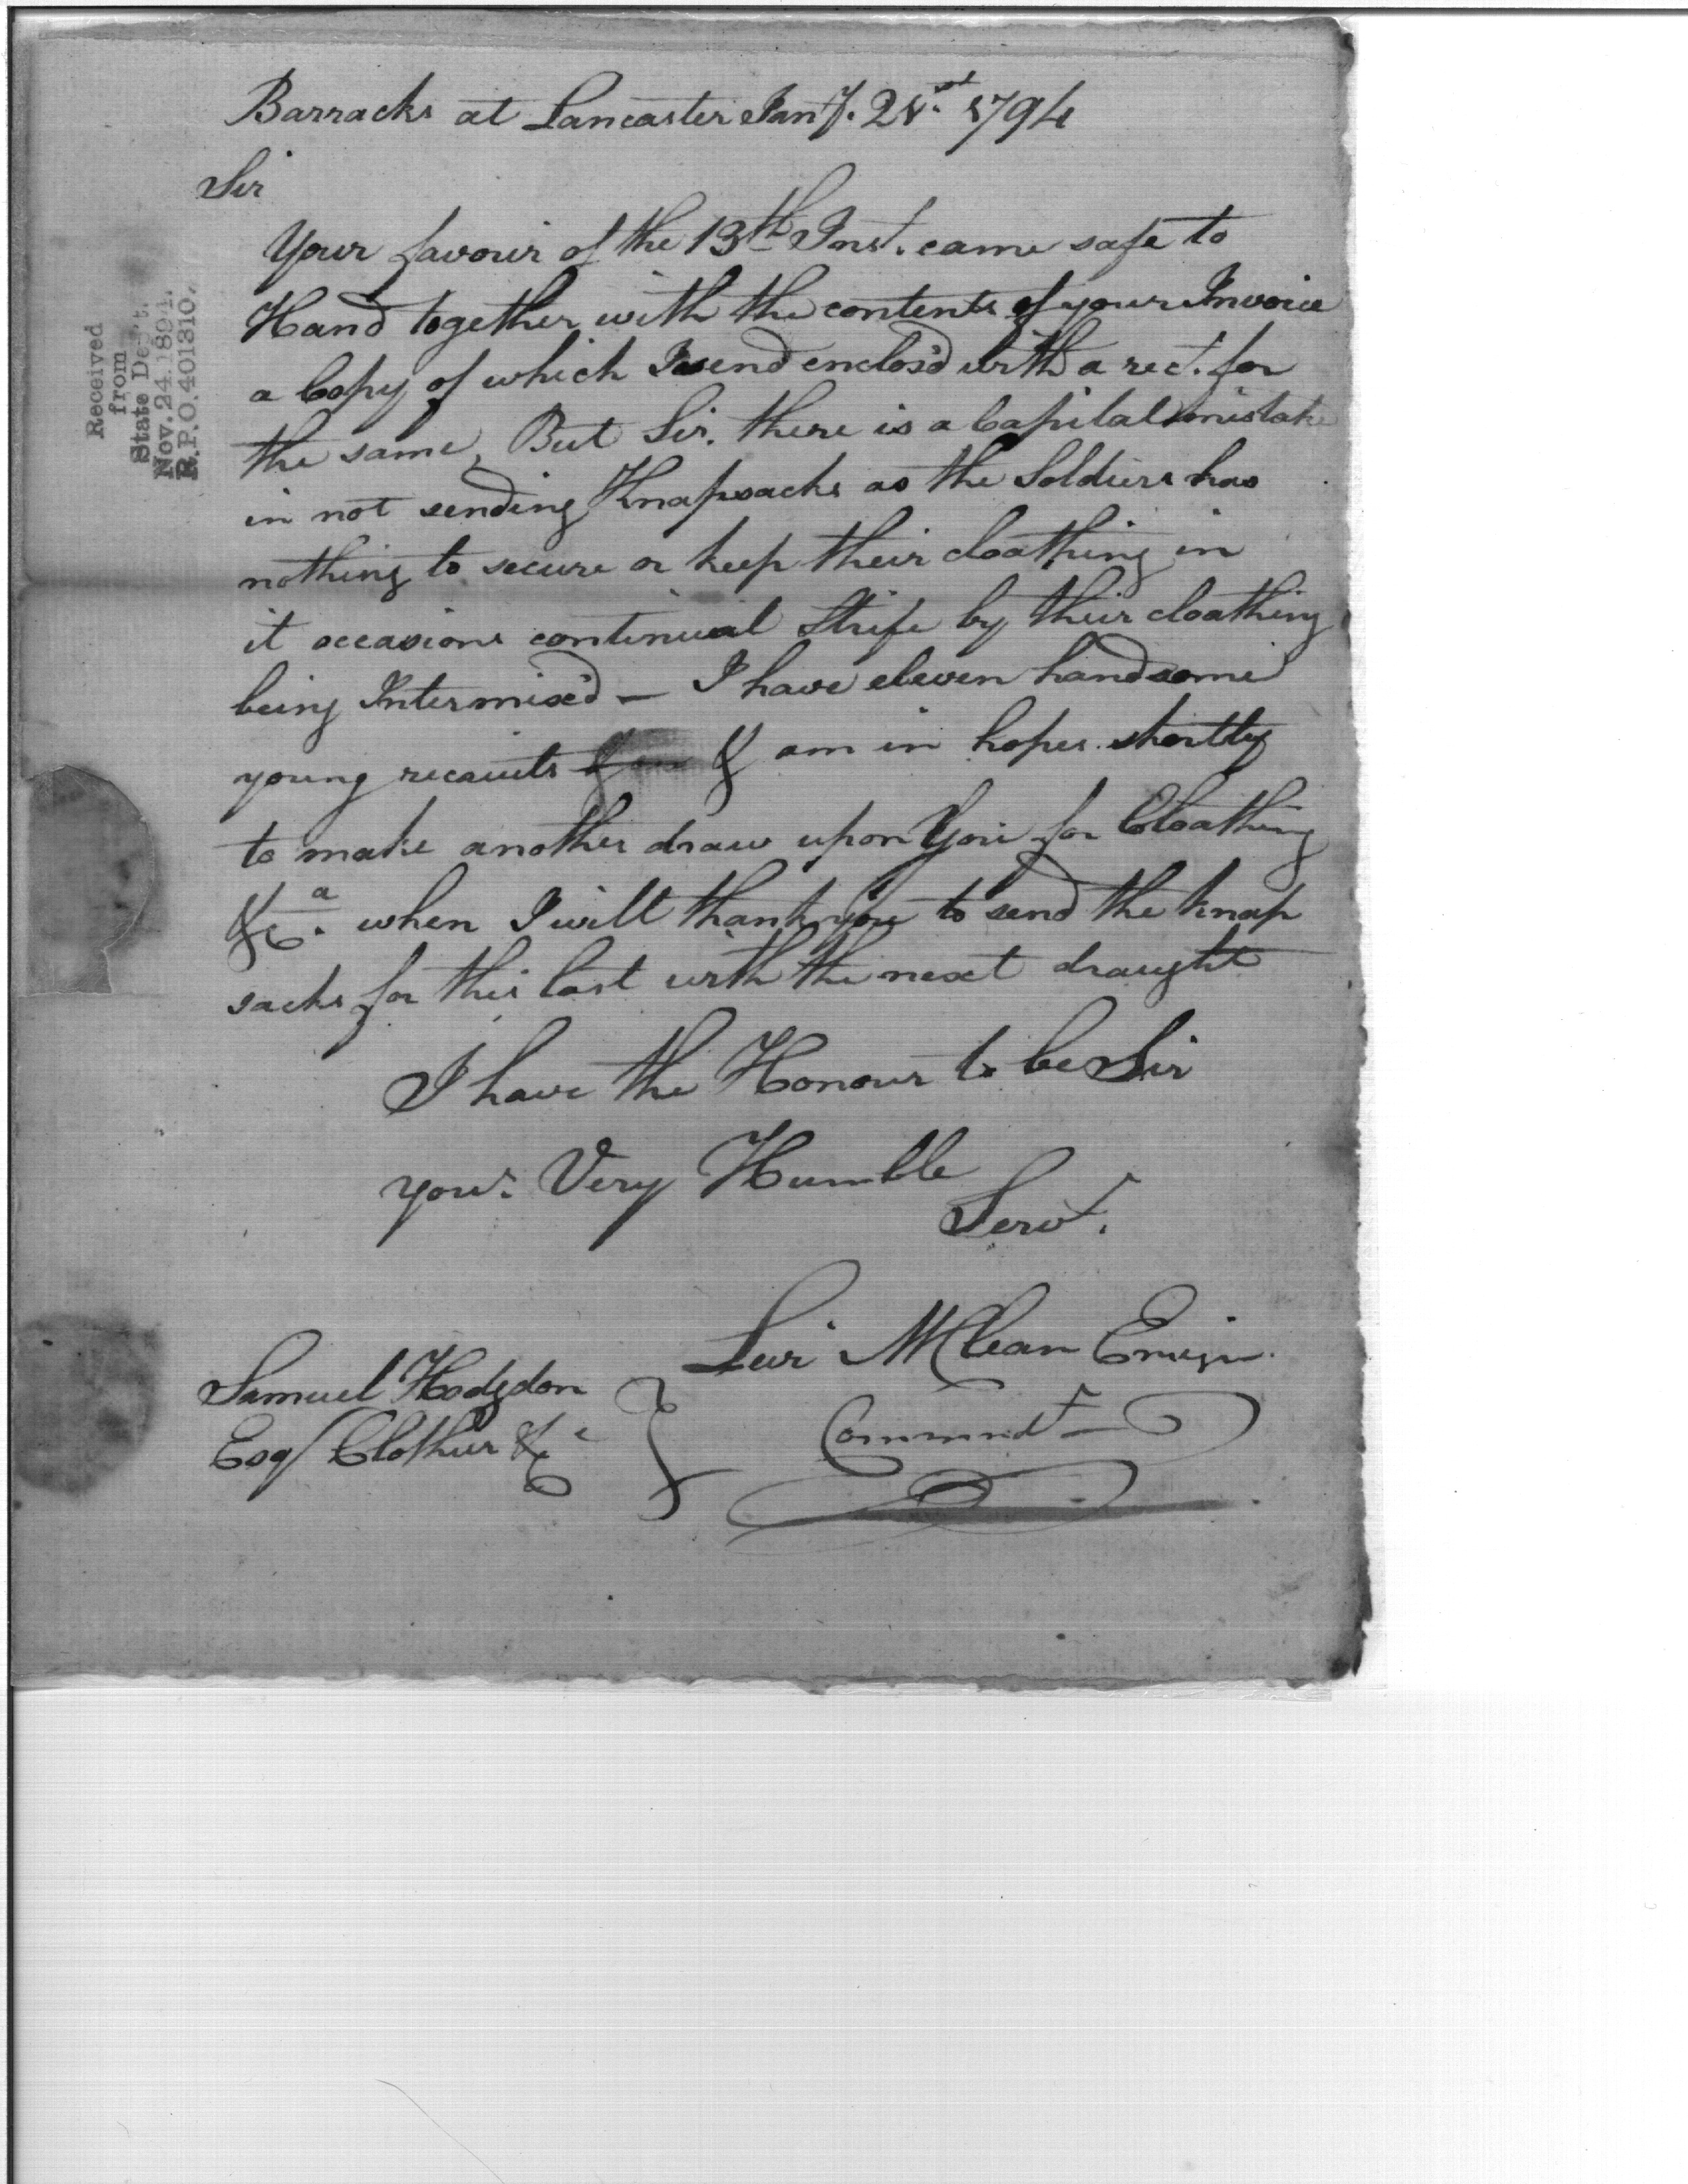 Barracks at Lancaster Jany. 21st. 1794
Sir
Your favour of the 13th Inst. came safe to
Hand together with the contents of your Invoice
a Copy of which I send enclos'd with a rect. for
the same, But Sir. there is a Capital mistake
in not sending Knapsacks as the Soldiers has
nothing to secure or keep their cloathing in
it occasions continual Strife by their cloathing
being Intermix'd — I have eleven handsome
young recruits & am in hopes shortly
to make another draw upon You for Cloathing
&ca. when I will thank you to send the knap
sacks for this last with the next draught
I have the Honour to be Sir
your. Very Humble
Servt.
Levi McClean Ensign
Commndt —
Samuel Hodgdon
Esq/ Clothier &c
Received
from
State Dept.
Nov. 24. 1894.
R.P.O. 401310.